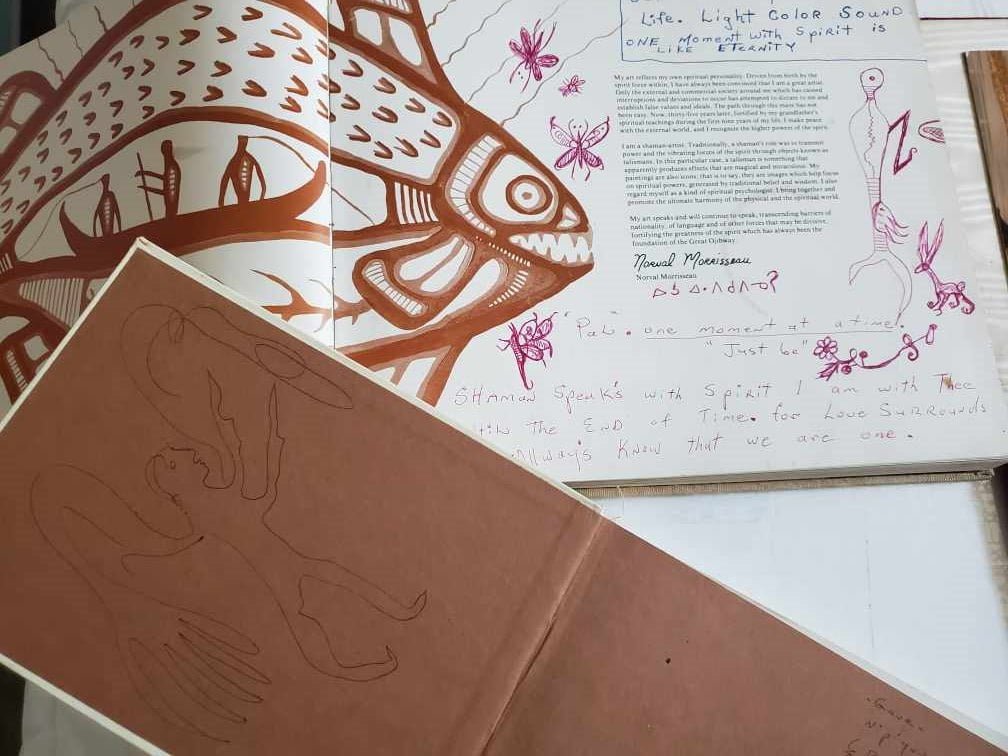 Life. Light Color Sound
ONE Moment with Spirit is
LIKE ETERNITY
My art reflects my own spiritual personality. Driven from birth by the
spirit force within, I have always been convinced that I am a great artist.
Only the external and commercial society around me which has caused
interruptions and deviations to occur has attempted to dictate to me and
establish false values and ideals. The path through this maze has not
been easy. Now, thirty-five years later, fortified by my grandfather's
spiritual teachings during the first nine years of my life, I make peace
with the external world, and I recognize the higher powers of the spirit.
I am a shaman-artist. Traditionally, a shaman's role was to transmit
power and the vibrating forces of the spirit through objects known as
talismans. In this particular case, a talisman is something that
apparently produces effects that are magical and miraculous. My
paintings are also icons; that is to say, they are images which help focus
on spiritual powers, generated by traditional belief and wisdom. I also
regard myself as a kind of spiritual psychologist. I bring together and
promote the ultimate harmony of the physical and the spiritual world.
My art speaks and will continue to speak, transcending barriers of
nationality, of language and of other forces that may be divisive,
fortifying the greatness of the spirit which has always been the
foundation of the Great Ojibway.
Norval Morrisseau
Norval Morrisseau
one moment at a time.
"Just be"
SHAMAN Speak's with Spirit I am with Thee
the END of Time. for Love Surrounds
Allway's Know that we are one.